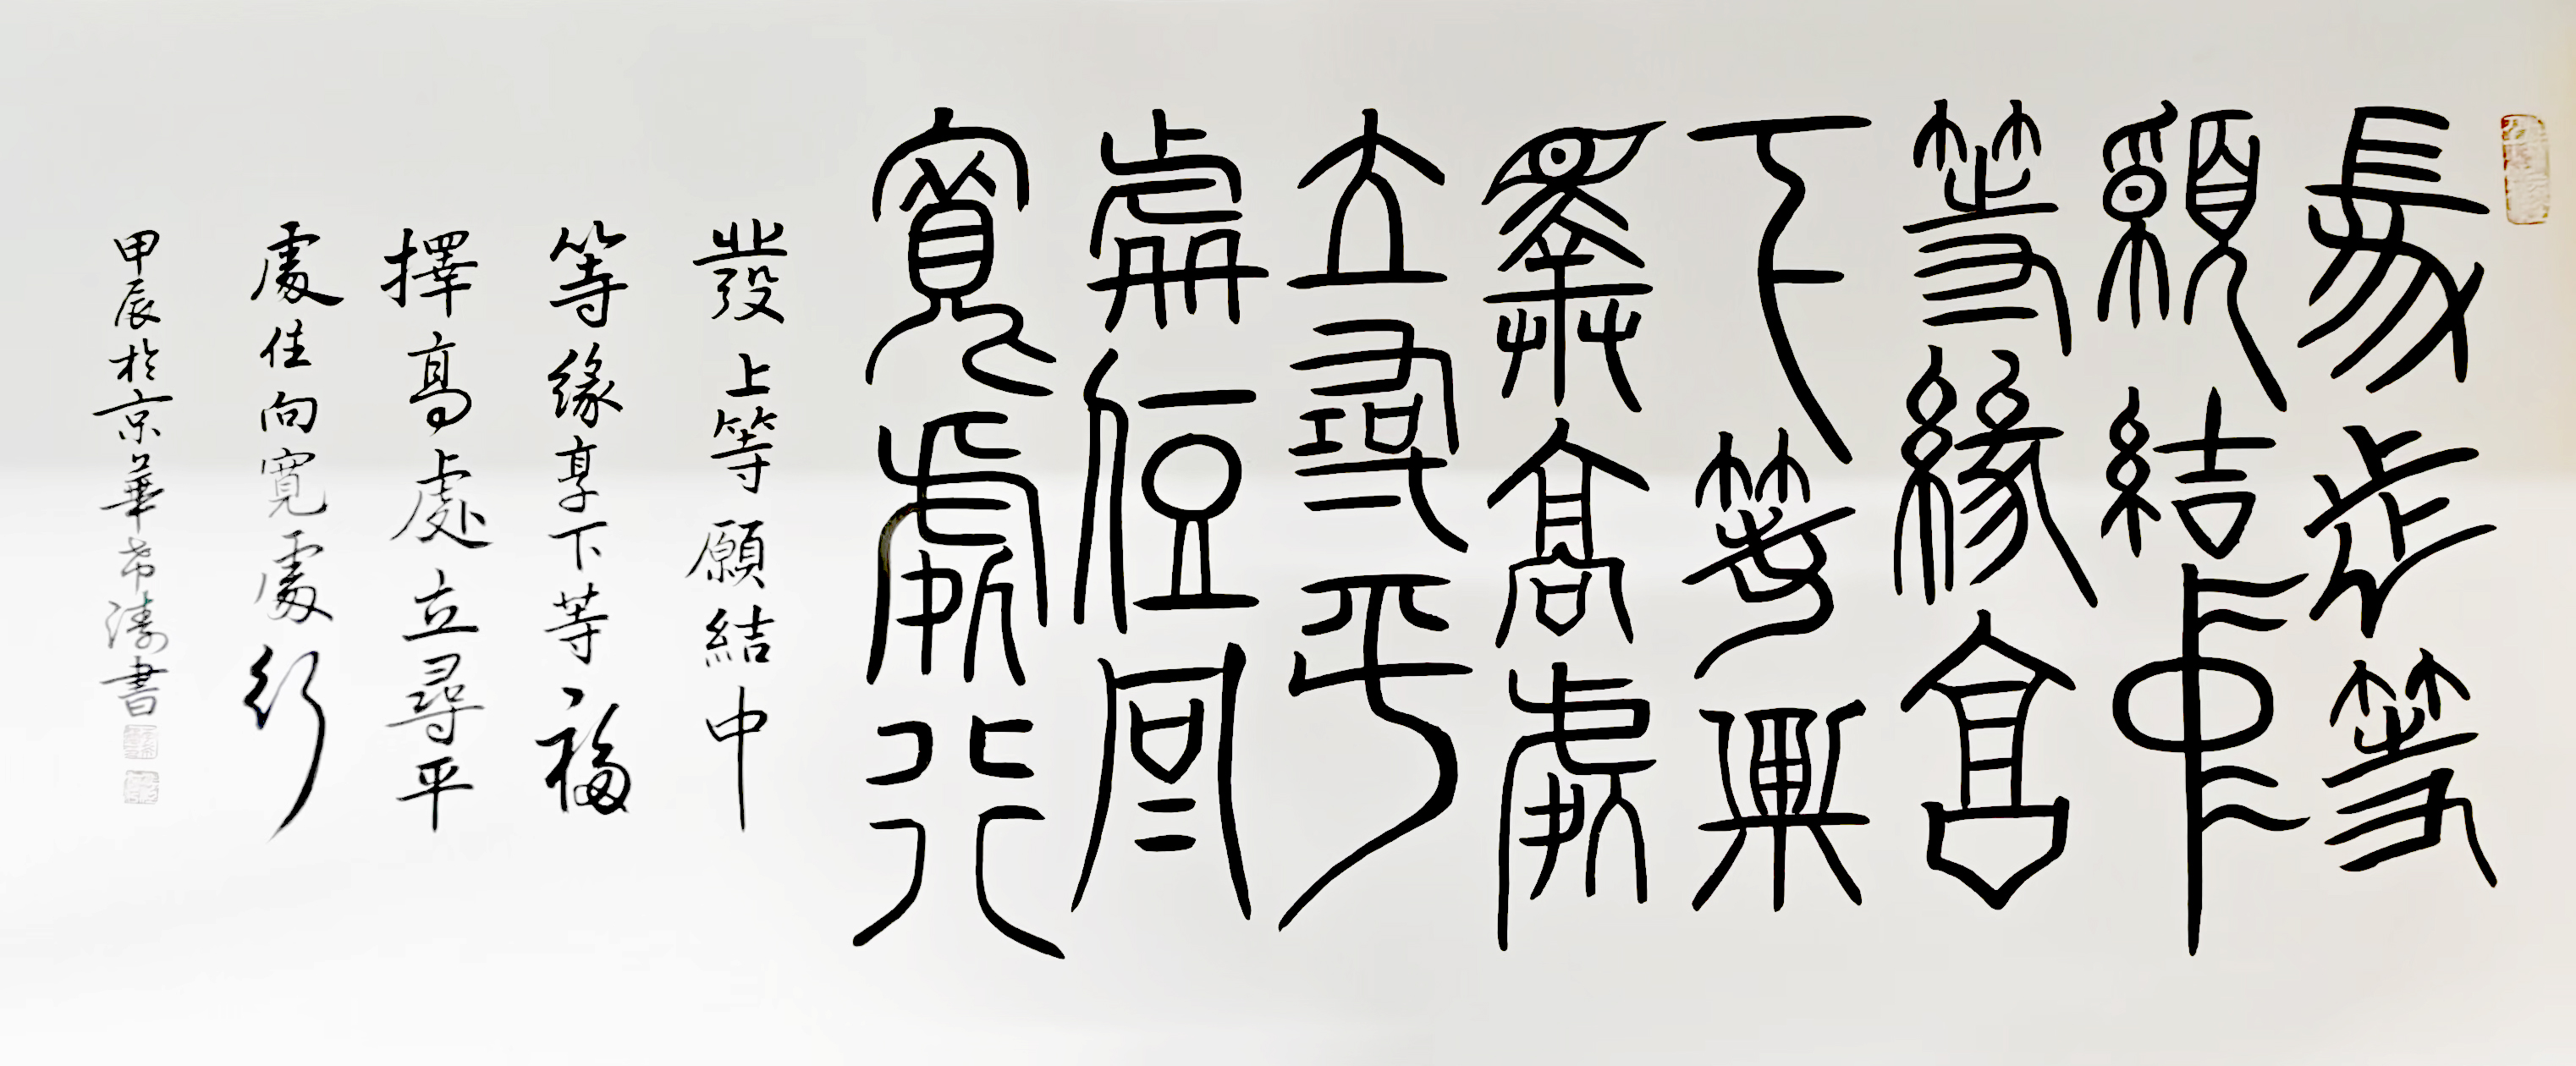 發上等
願結中
等緣享
下等福
擇高處
立尋平
處住向
寬處行
發上等願結中
等緣享下等福
擇高處立尋平
處住向寬處行
甲辰於京華希濤書